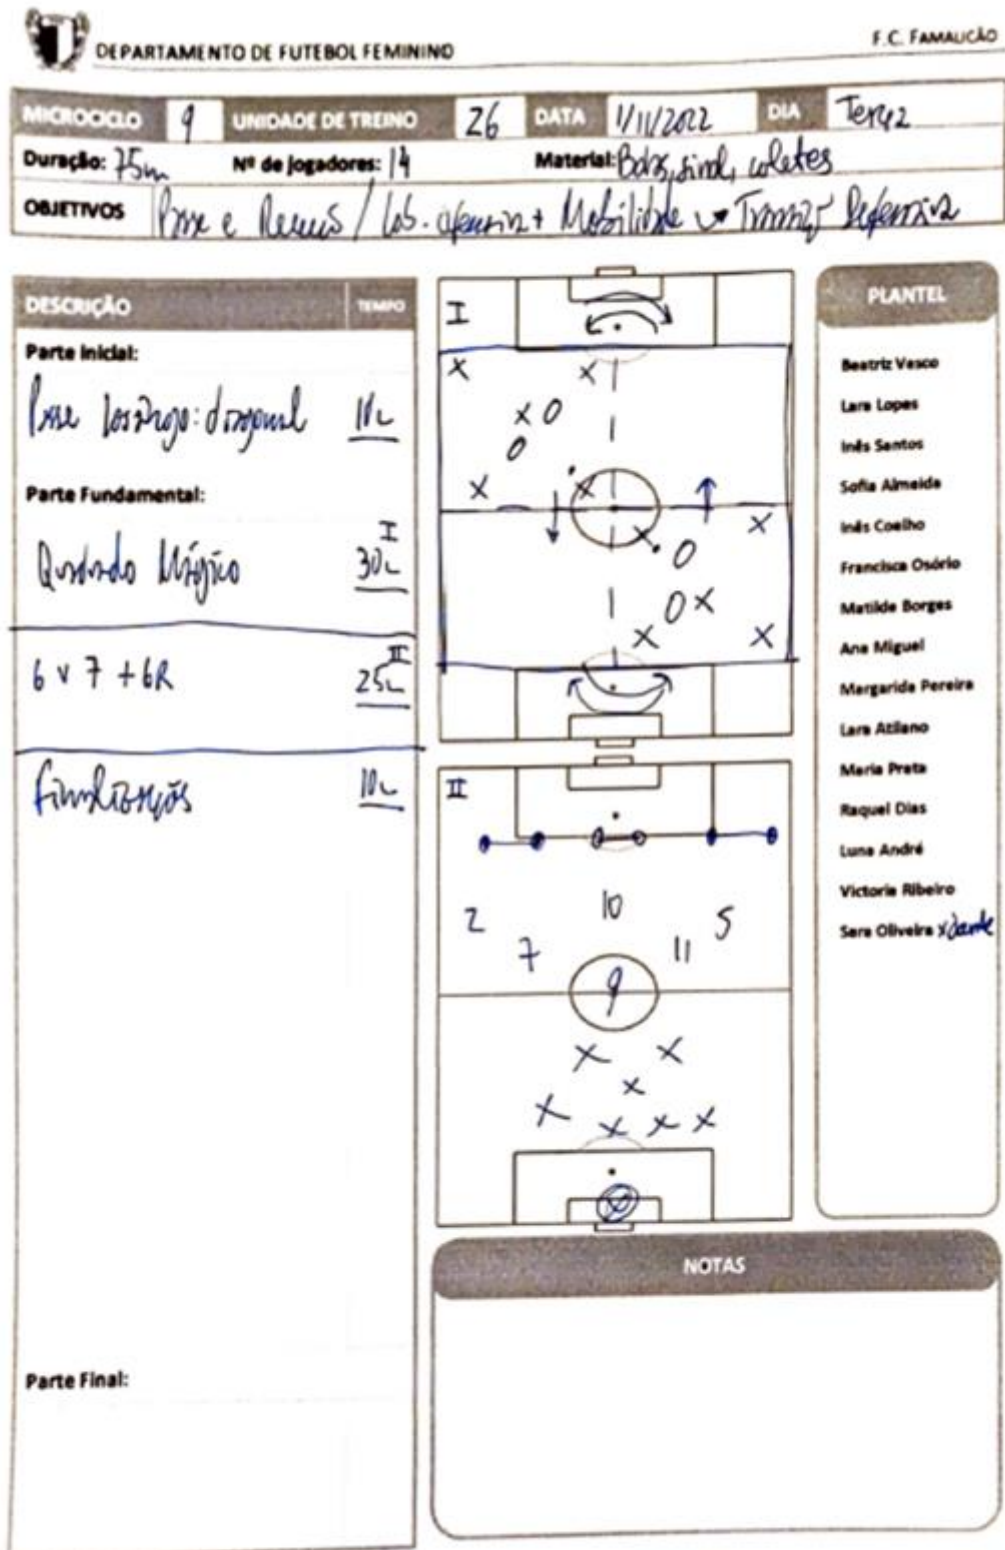 DEPARTAMENTO DE FUTEBOL FEMININO
F.C. FAMALICÃO
MICROCICLO 9 UNIDADE DE TREINO 26 DATA 1/11/2022 DIA Terça
Duração: 75m Nº de jogadores: 14 Material: Bolas, sinal, coletes
OBJETIVOS Passe e Receção / Lob. ofensiva + Mobilidade Transição Defensiva
DESCRIÇÃO TEMPO
Parte Inicial:
Passe losango: diagonal 10
Parte Fundamental:
I
Quadrado Mágico 30
II
6 v 7 + 6R 25
Finalização 10
Parte Final:
I
X X
X O
O
X X
X X
O
O X
X X
II
2 10 5
7 11
9
X X
X
X X X X
PLANTEL
Beatriz Vasco
Lara Lopes
Inês Santos
Sofia Almeida
Inês Coelho
Francisca Osório
Matilde Borges
Ana Miguel
Margarida Pereira
Lara Atilano
Maria Prata
Raquel Dias
Luna André
Victoria Ribeiro
Sara Oliveira x
NOTAS